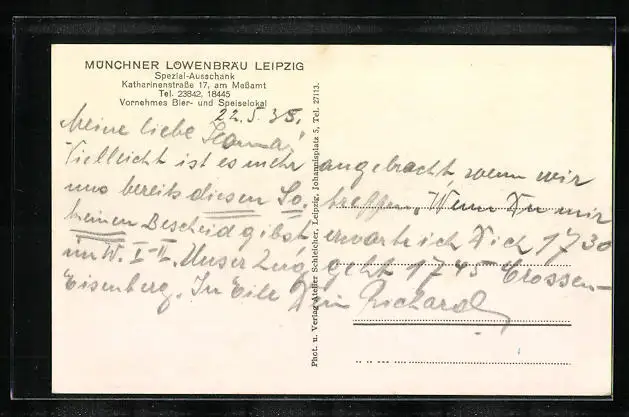 MÜNCHNER LÖWENBRÄU LEIPZIG
Spezial-Ausschank
Katharinenstraße 17, am Meßamt
Tel. 23842, 18445
Vornehmes Bier- und Speiselokal
22.5.35.
Meine liebe
Vielleicht ist es mehr angebracht, wenn wir
uns bereits diesen So. treffen. Wenn Du mir
keinen Bescheid gibst, erwarte ich Dich 1730
im W. I-II. Unser Zug geht 1745 Crossen-
Eisenberg. In Eile Dein Richard
Phot. u. Verlag Atelier Schleicher, Leipzig, Johannisplatz 5, Tel. 27113.